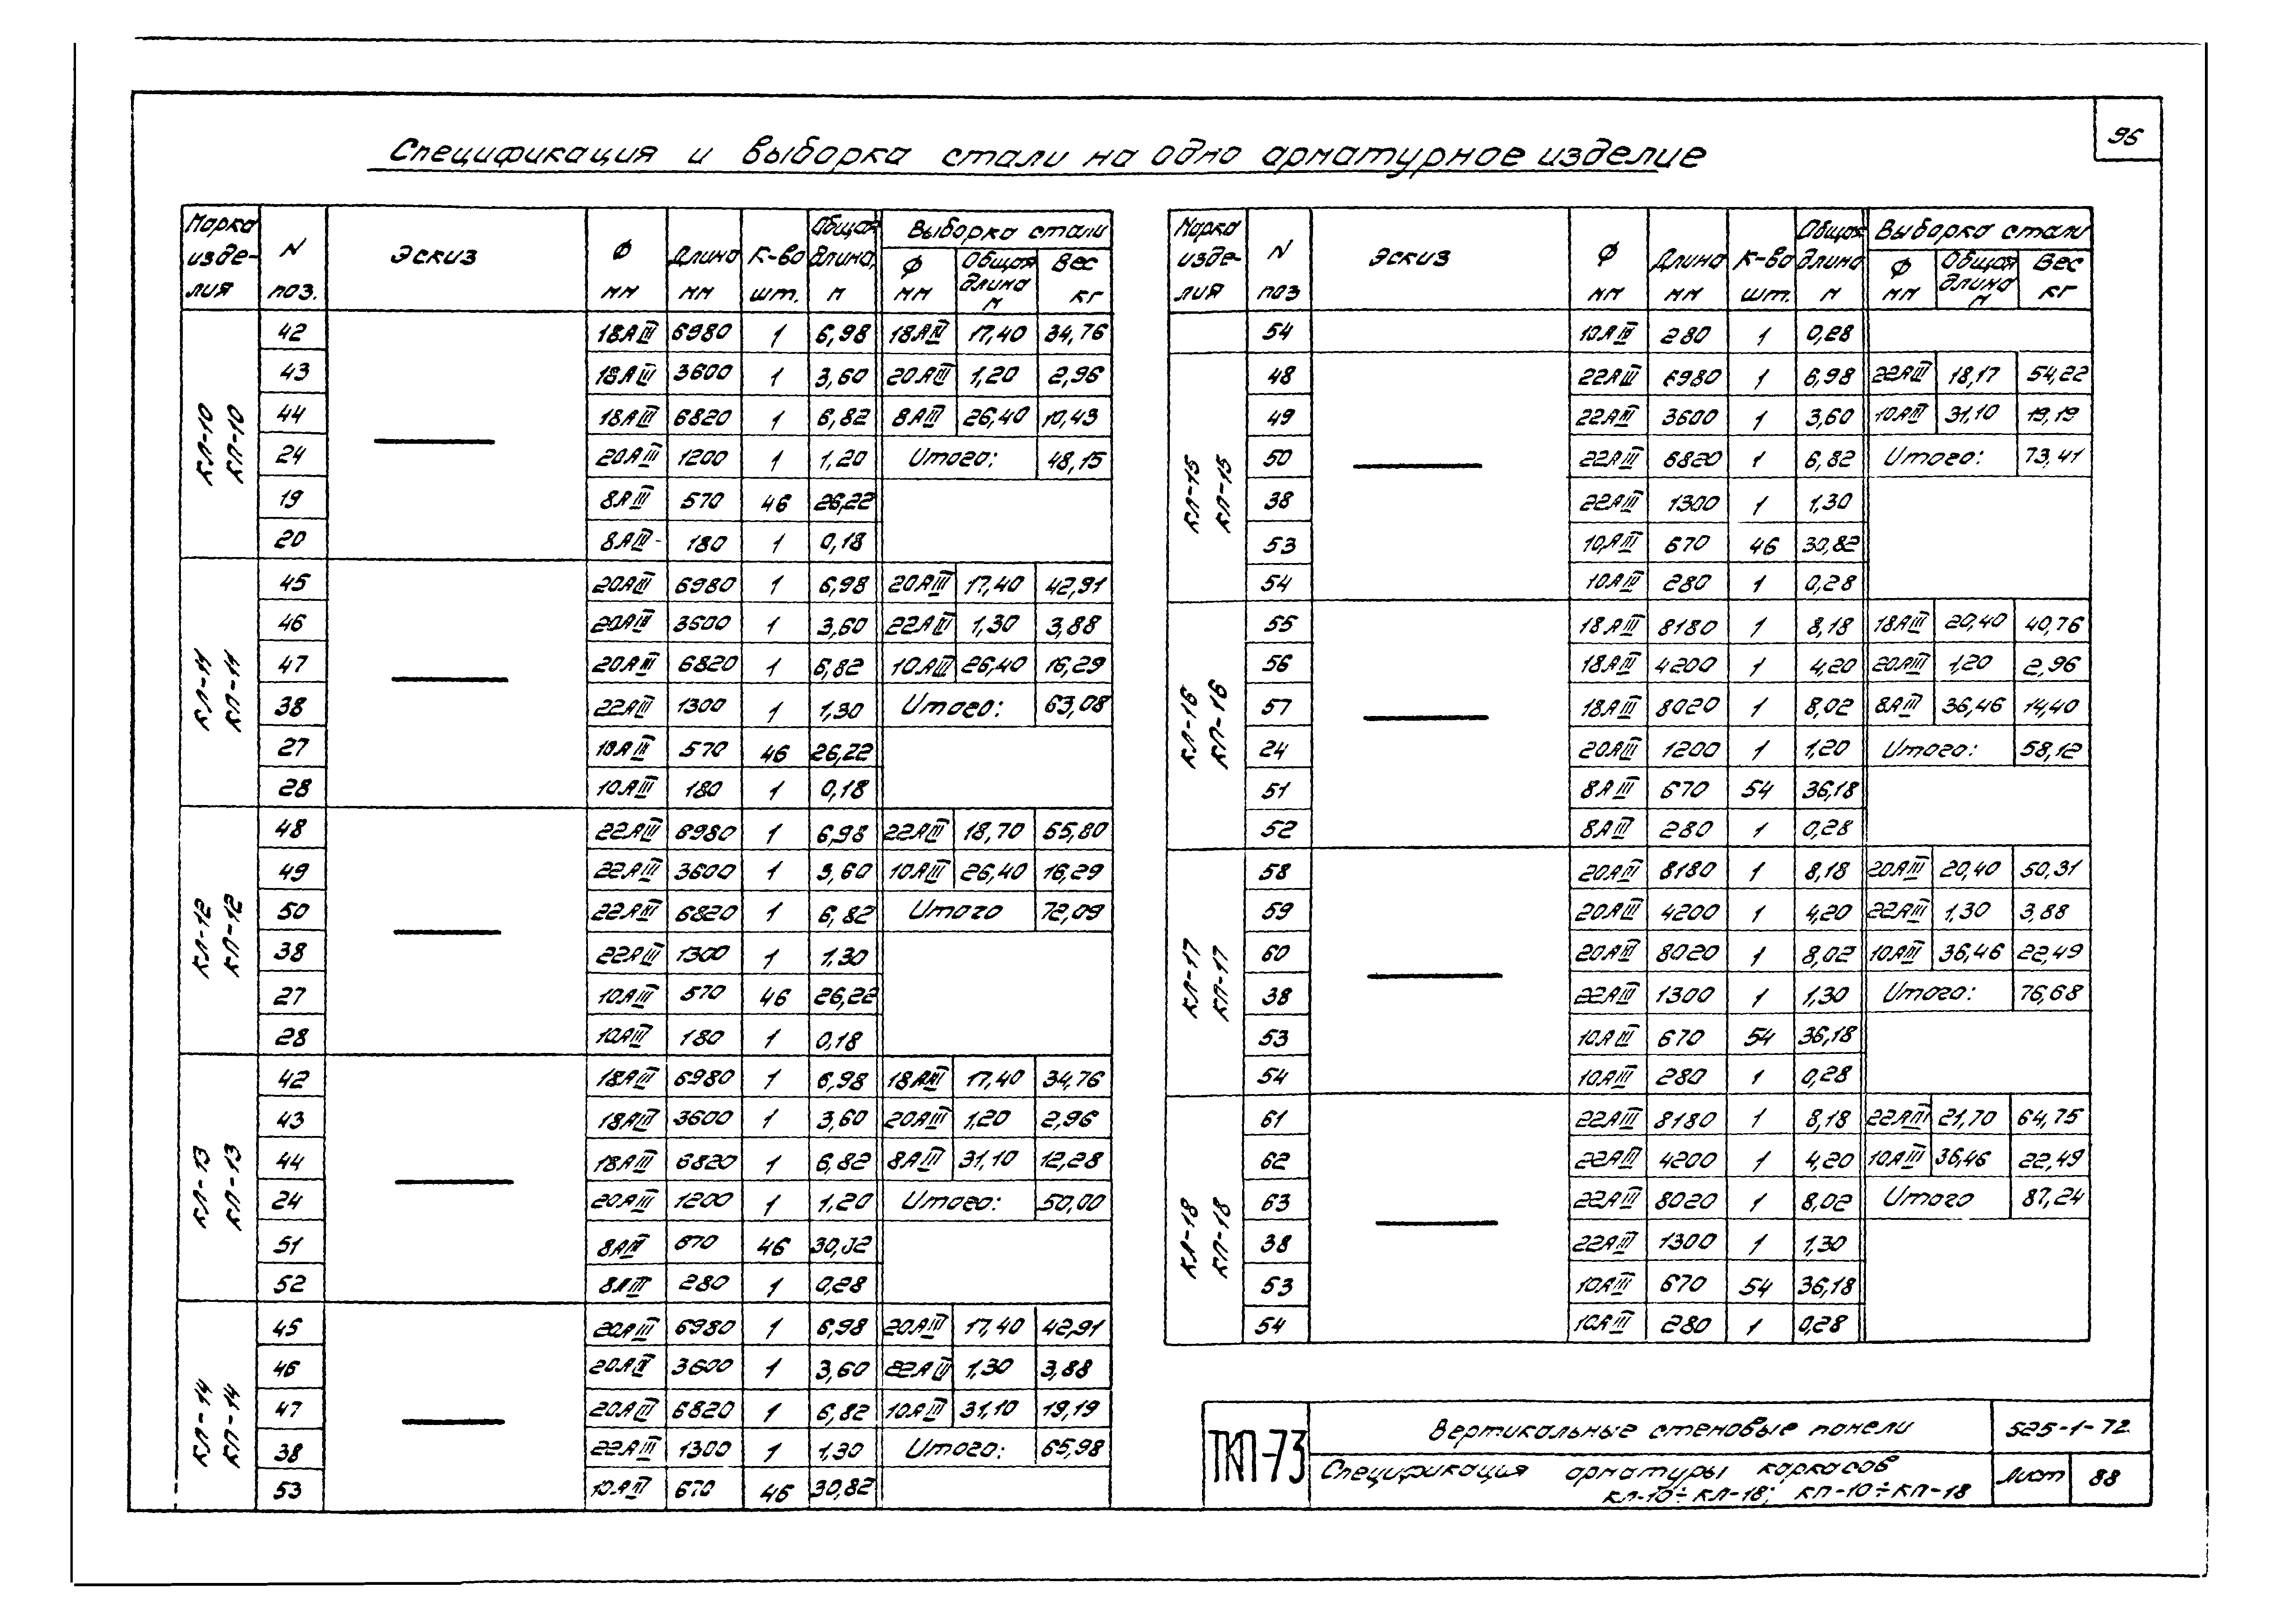 96
Спецификация и выборка стали на одно арматурное изделие
Марка изде- лия | N поз. | Эскиз | Ф мм | Длина мм | К-во шт. | Общая длина, м | Выборка стали: Ф мм | Общая длина м | Вес кг
КЛ-10 КП-10
42 18АIII 6980 1 6,98 18АIII 17,40 34,76
43 18АIII 3600 1 3,60 20АIII 1,20 2,96
44 18АIII 6820 1 6,82 8АIII 26,40 10,43
24 20АIII 1200 1 1,20 Итого: 48,15
19 8АIII 570 46 26,22
20 8АIII 180 1 0,18
КЛ-11 КП-11
45 20АIII 6980 1 6,98 20АIII 17,40 42,91
46 20АIII 3600 1 3,60 22АIII 1,30 3,88
47 20АIII 6820 1 6,82 10АIII 26,40 16,29
38 22АIII 1300 1 1,30 Итого: 63,08
27 10АIII 570 46 26,22
28 10АIII 180 1 0,18
КЛ-12 КП-12
48 22АIII 6980 1 6,98 22АIII 18,70 55,80
49 22АIII 3600 1 3,60 10АIII 26,40 16,29
50 22АIII 6820 1 6,82 Итого 72,09
38 22АIII 1300 1 1,30
27 10АIII 570 46 26,22
28 10АIII 180 1 0,18
КЛ-13 КП-13
42 18АIII 6980 1 6,98 18АIII 17,40 34,76
43 18АIII 3600 1 3,60 20АIII 1,20 2,96
44 18АIII 6820 1 6,82 8АIII 31,10 12,28
24 20АIII 1200 1 1,20 Итого: 50,00
51 8АIII 670 46 30,82
52 8АIII 280 1 0,28
КЛ-14 КП-14
45 20АIII 6980 1 6,98 20АIII 17,40 42,91
46 20АIII 3600 1 3,60 22АIII 1,30 3,88
47 20АIII 6820 1 6,82 10АIII 31,10 19,19
38 22АIII 1300 1 1,30 Итого: 65,98
53 10АIII 670 46 30,82
Марка изде- лия | N поз | Эскиз | Ф мм | Длина мм | К-во шт. | Общая длина м | Выборка стали: Ф мм | Общая длина м | Вес кг
54 10АIII 280 1 0,28
КЛ-15 КП-15
48 22АIII 6980 1 6,98 22АIII 18,17 54,22
49 22АIII 3600 1 3,60 10АIII 31,10 19,19
50 22АIII 6820 1 6,82 Итого: 73,41
38 22АIII 1300 1 1,30
53 10АIII 670 46 30,82
54 10АIII 280 1 0,28
КЛ-16 КП-16
55 18АIII 8180 1 8,18 18АIII 20,40 40,76
56 18АIII 4200 1 4,20 20АIII 1,20 2,96
57 18АIII 8020 1 8,02 8АIII 36,46 14,40
24 20АIII 1200 1 1,20 Итого: 58,12
51 8АIII 670 54 36,18
52 8АIII 280 1 0,28
КЛ-17 КП-17
58 20АIII 8180 1 8,18 20АIII 20,40 50,31
59 20АIII 4200 1 4,20 22АIII 1,30 3,88
60 20АIII 8020 1 8,02 10АIII 36,46 22,49
38 22АIII 1300 1 1,30 Итого: 76,68
53 10АIII 670 54 36,18
54 10АIII 280 1 0,28
КЛ-18 КП-18
61 22АIII 8180 1 8,18 22АIII 21,70 64,75
62 22АIII 4200 1 4,20 10АIII 36,46 22,49
63 22АIII 8020 1 8,02 Итого 87,24
38 22АIII 1300 1 1,30
53 10АIII 670 54 36,18
54 10АIII 280 1 0,28
ТКП-73
Вертикальные стеновые панели
525-1-72
Спецификация арматуры каркасов
КЛ-10÷КЛ-18; КП-10÷КП-18
Лист 88